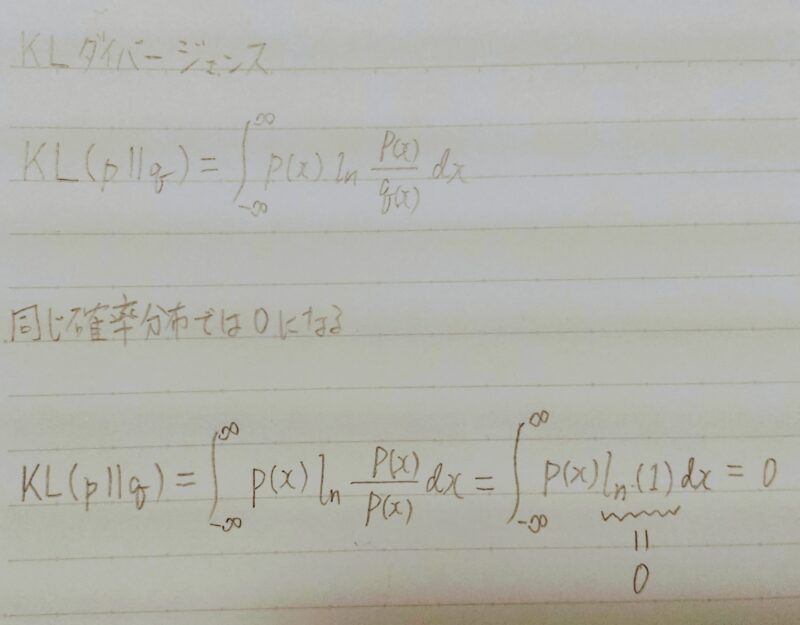 KLダイバージェンス
KL(p||q) = ∫_{-∞}^{∞} p(x) ln \frac{p(x)}{q(x)} dx
同じ確率分布では0になる
KL(p||q) = ∫_{-∞}^{∞} p(x) ln \frac{p(x)}{p(x)} dx = ∫_{-∞}^{∞} p(x) ln(1) dx = 0
||
0